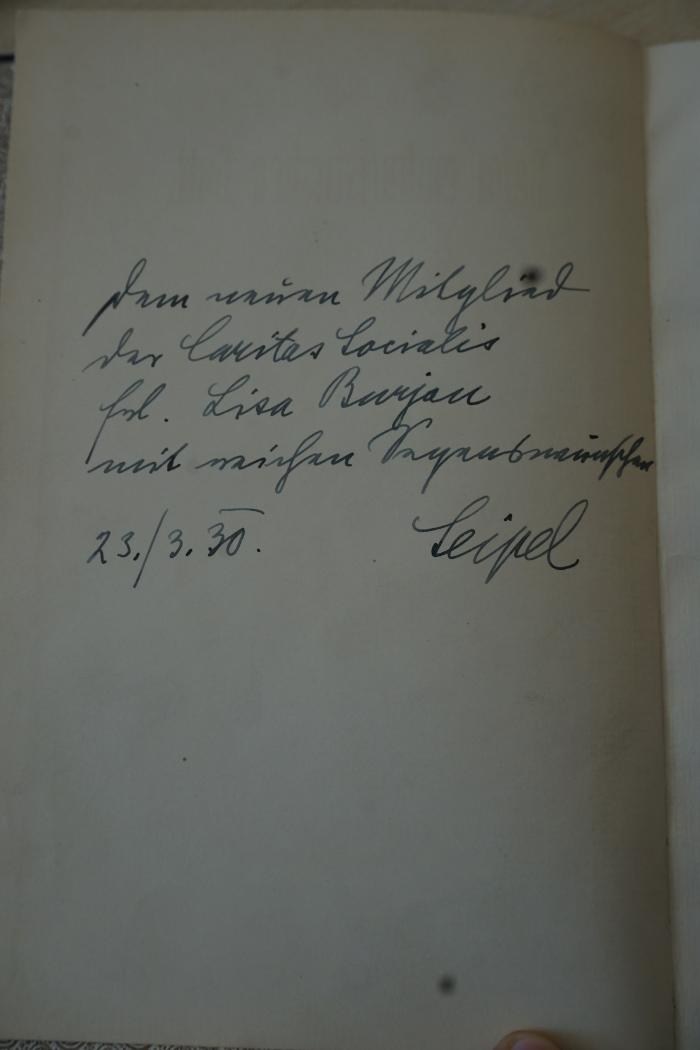 Dem neuen Mitglied
der Caritas Socialis
Frl. Lisa Burjan
mit reichen Segenswünschen
23./3.30. Seipel